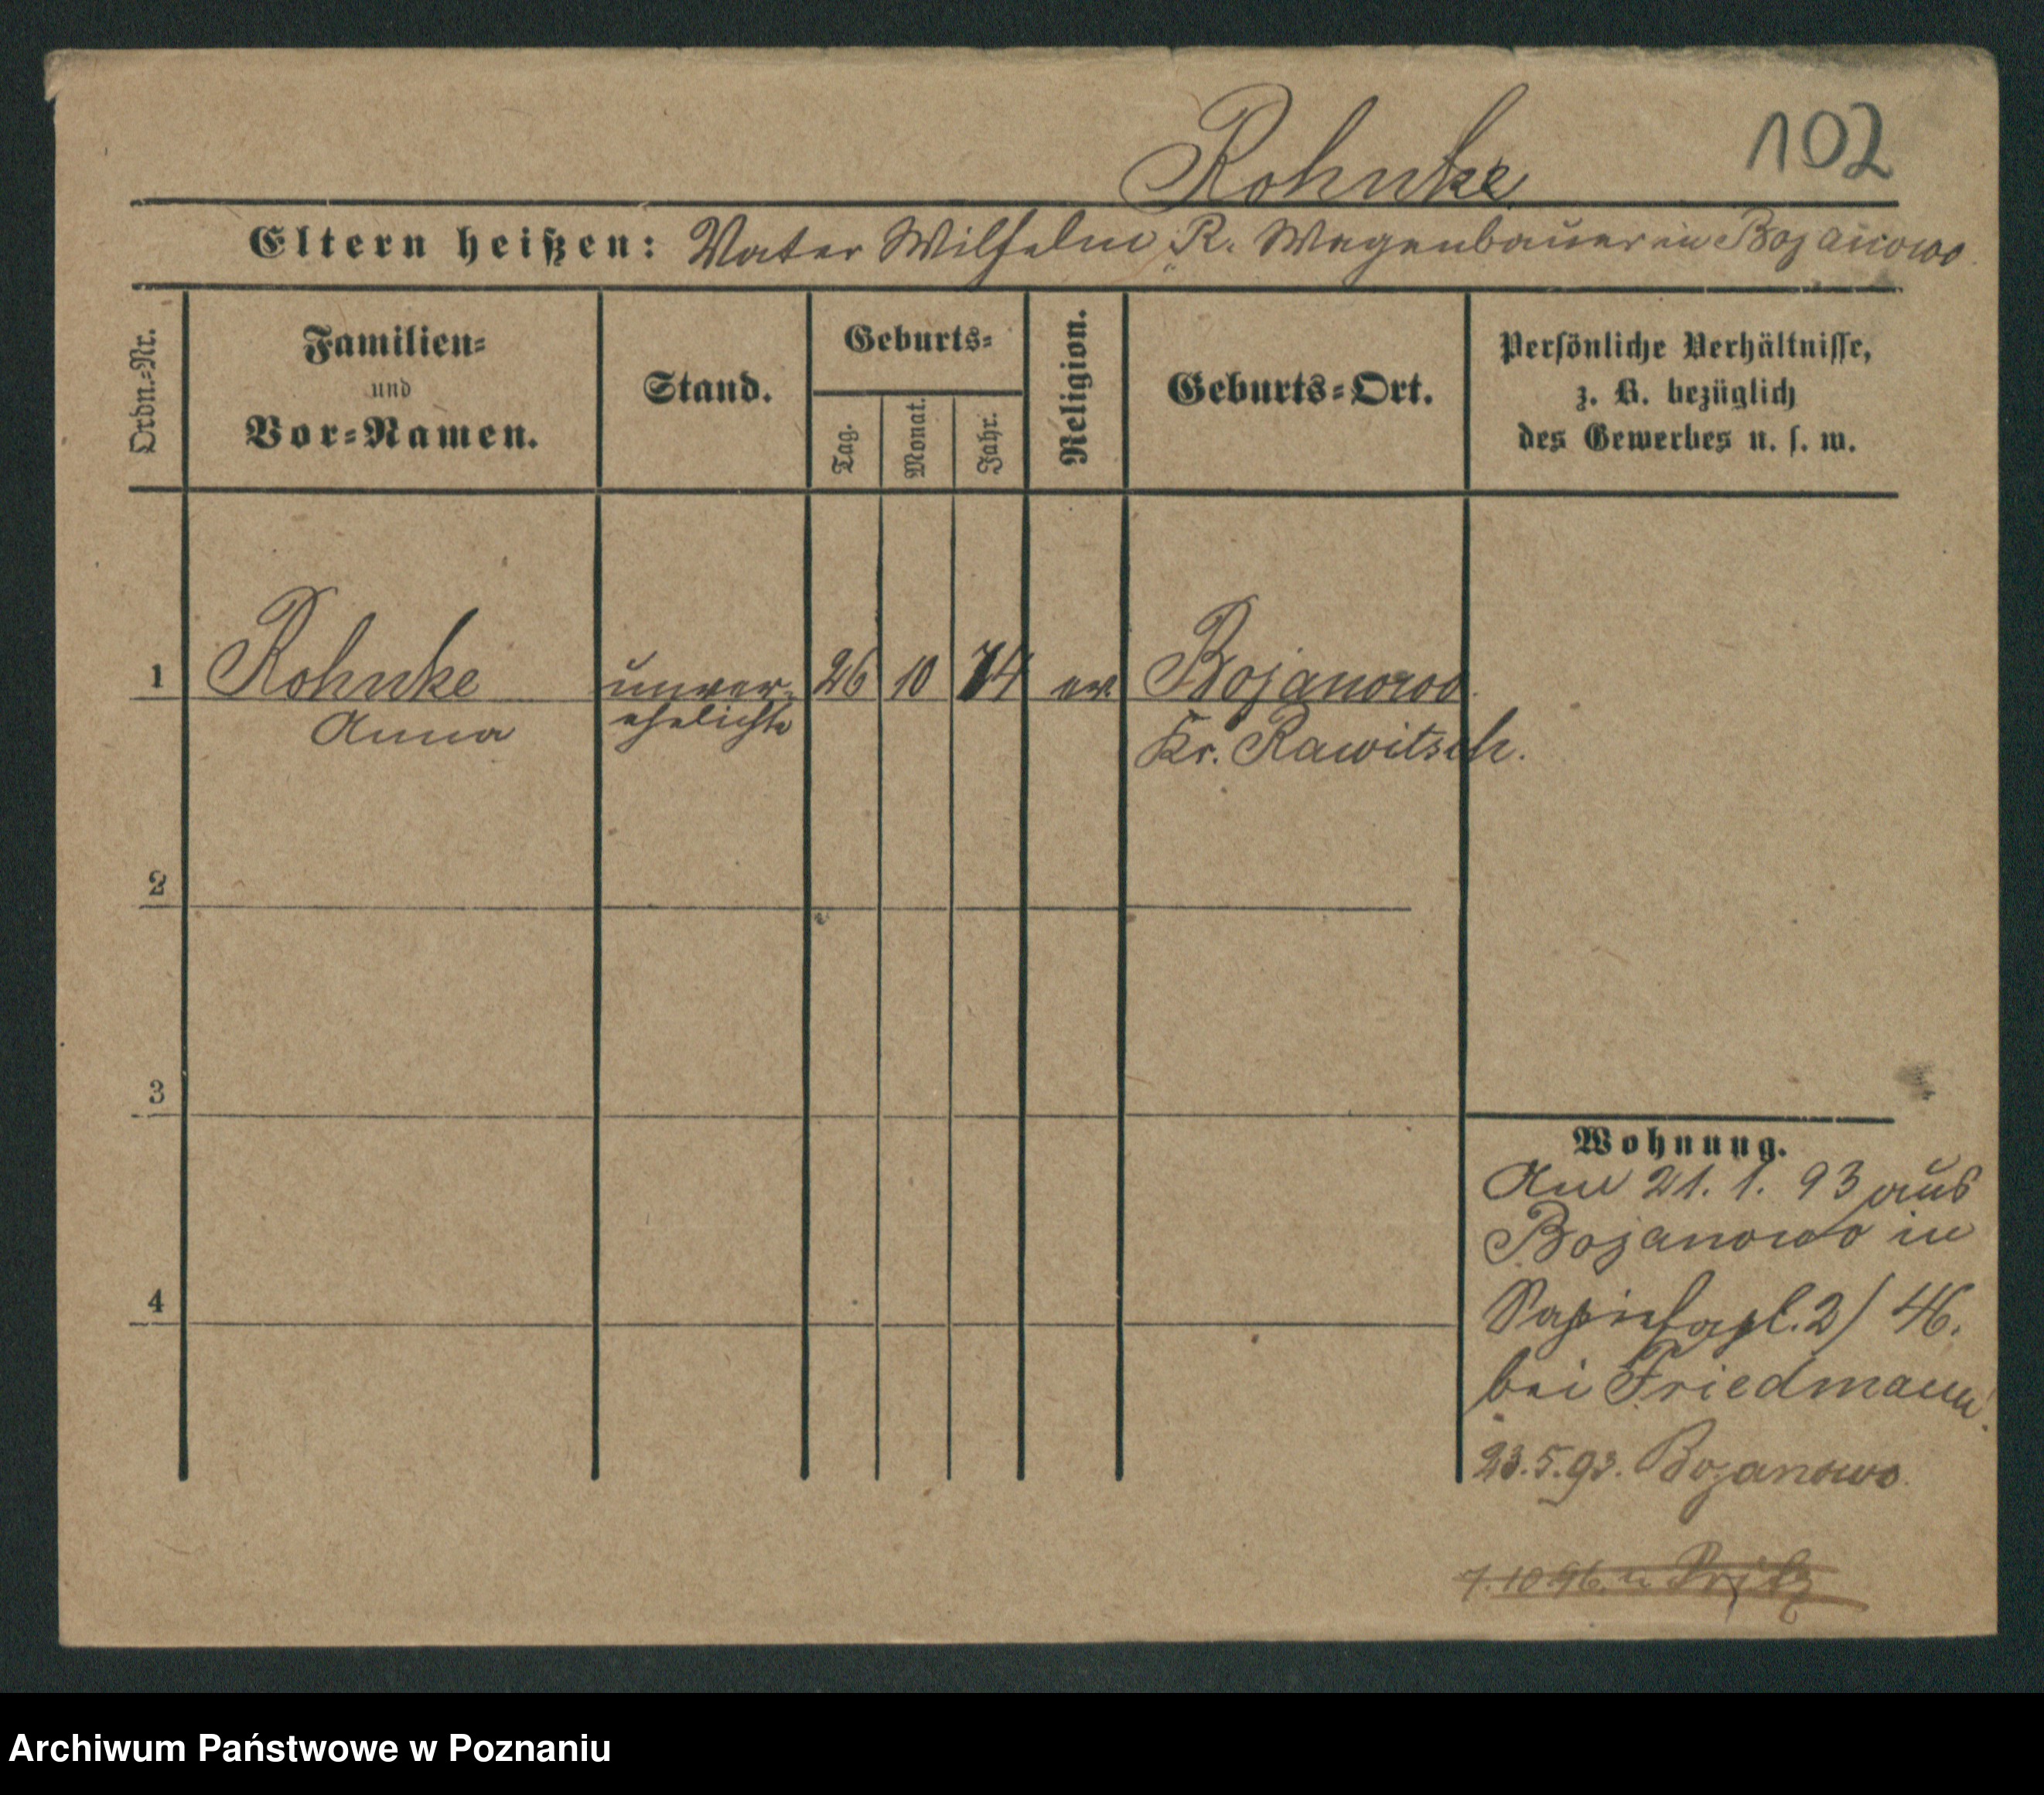 Rohnke
102
Eltern heißen: Vater Wilhelm R. Wagenbauer in Bojanowo.
Ordn.-Nr.
Familien-
und
Vor-Namen.
Stand.
Geburts-
Tag.
Monat.
Jahr.
Religion.
Geburts-Ort.
Persönliche Verhältnisse,
z. B. bezüglich
des Gewerbes u. s. w.
1 Rohnke unver- 26 10 74 ev. Bojanowo.
Anna ehelicht Kr. Rawitsch.
2
3
4
Wohnung.
Am 21. 1. 93 aus
Bojanowo in
Sapiehapl. 2/ 46.
bei Friedmann.
23.5.93. Bojanowo.
7.10 96. n
Archiwum Państwowe w Poznaniu